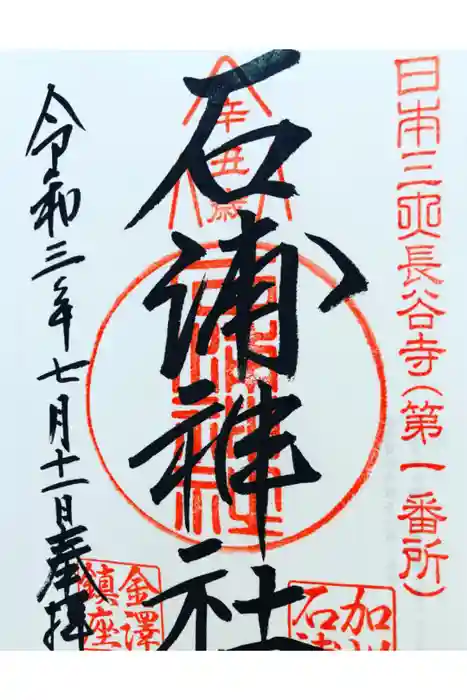 日本三大長谷寺(第一番所)
辛丑歳
石浦神社
令和三年七月十一日奉拝
加
石浦
金澤
鎮座